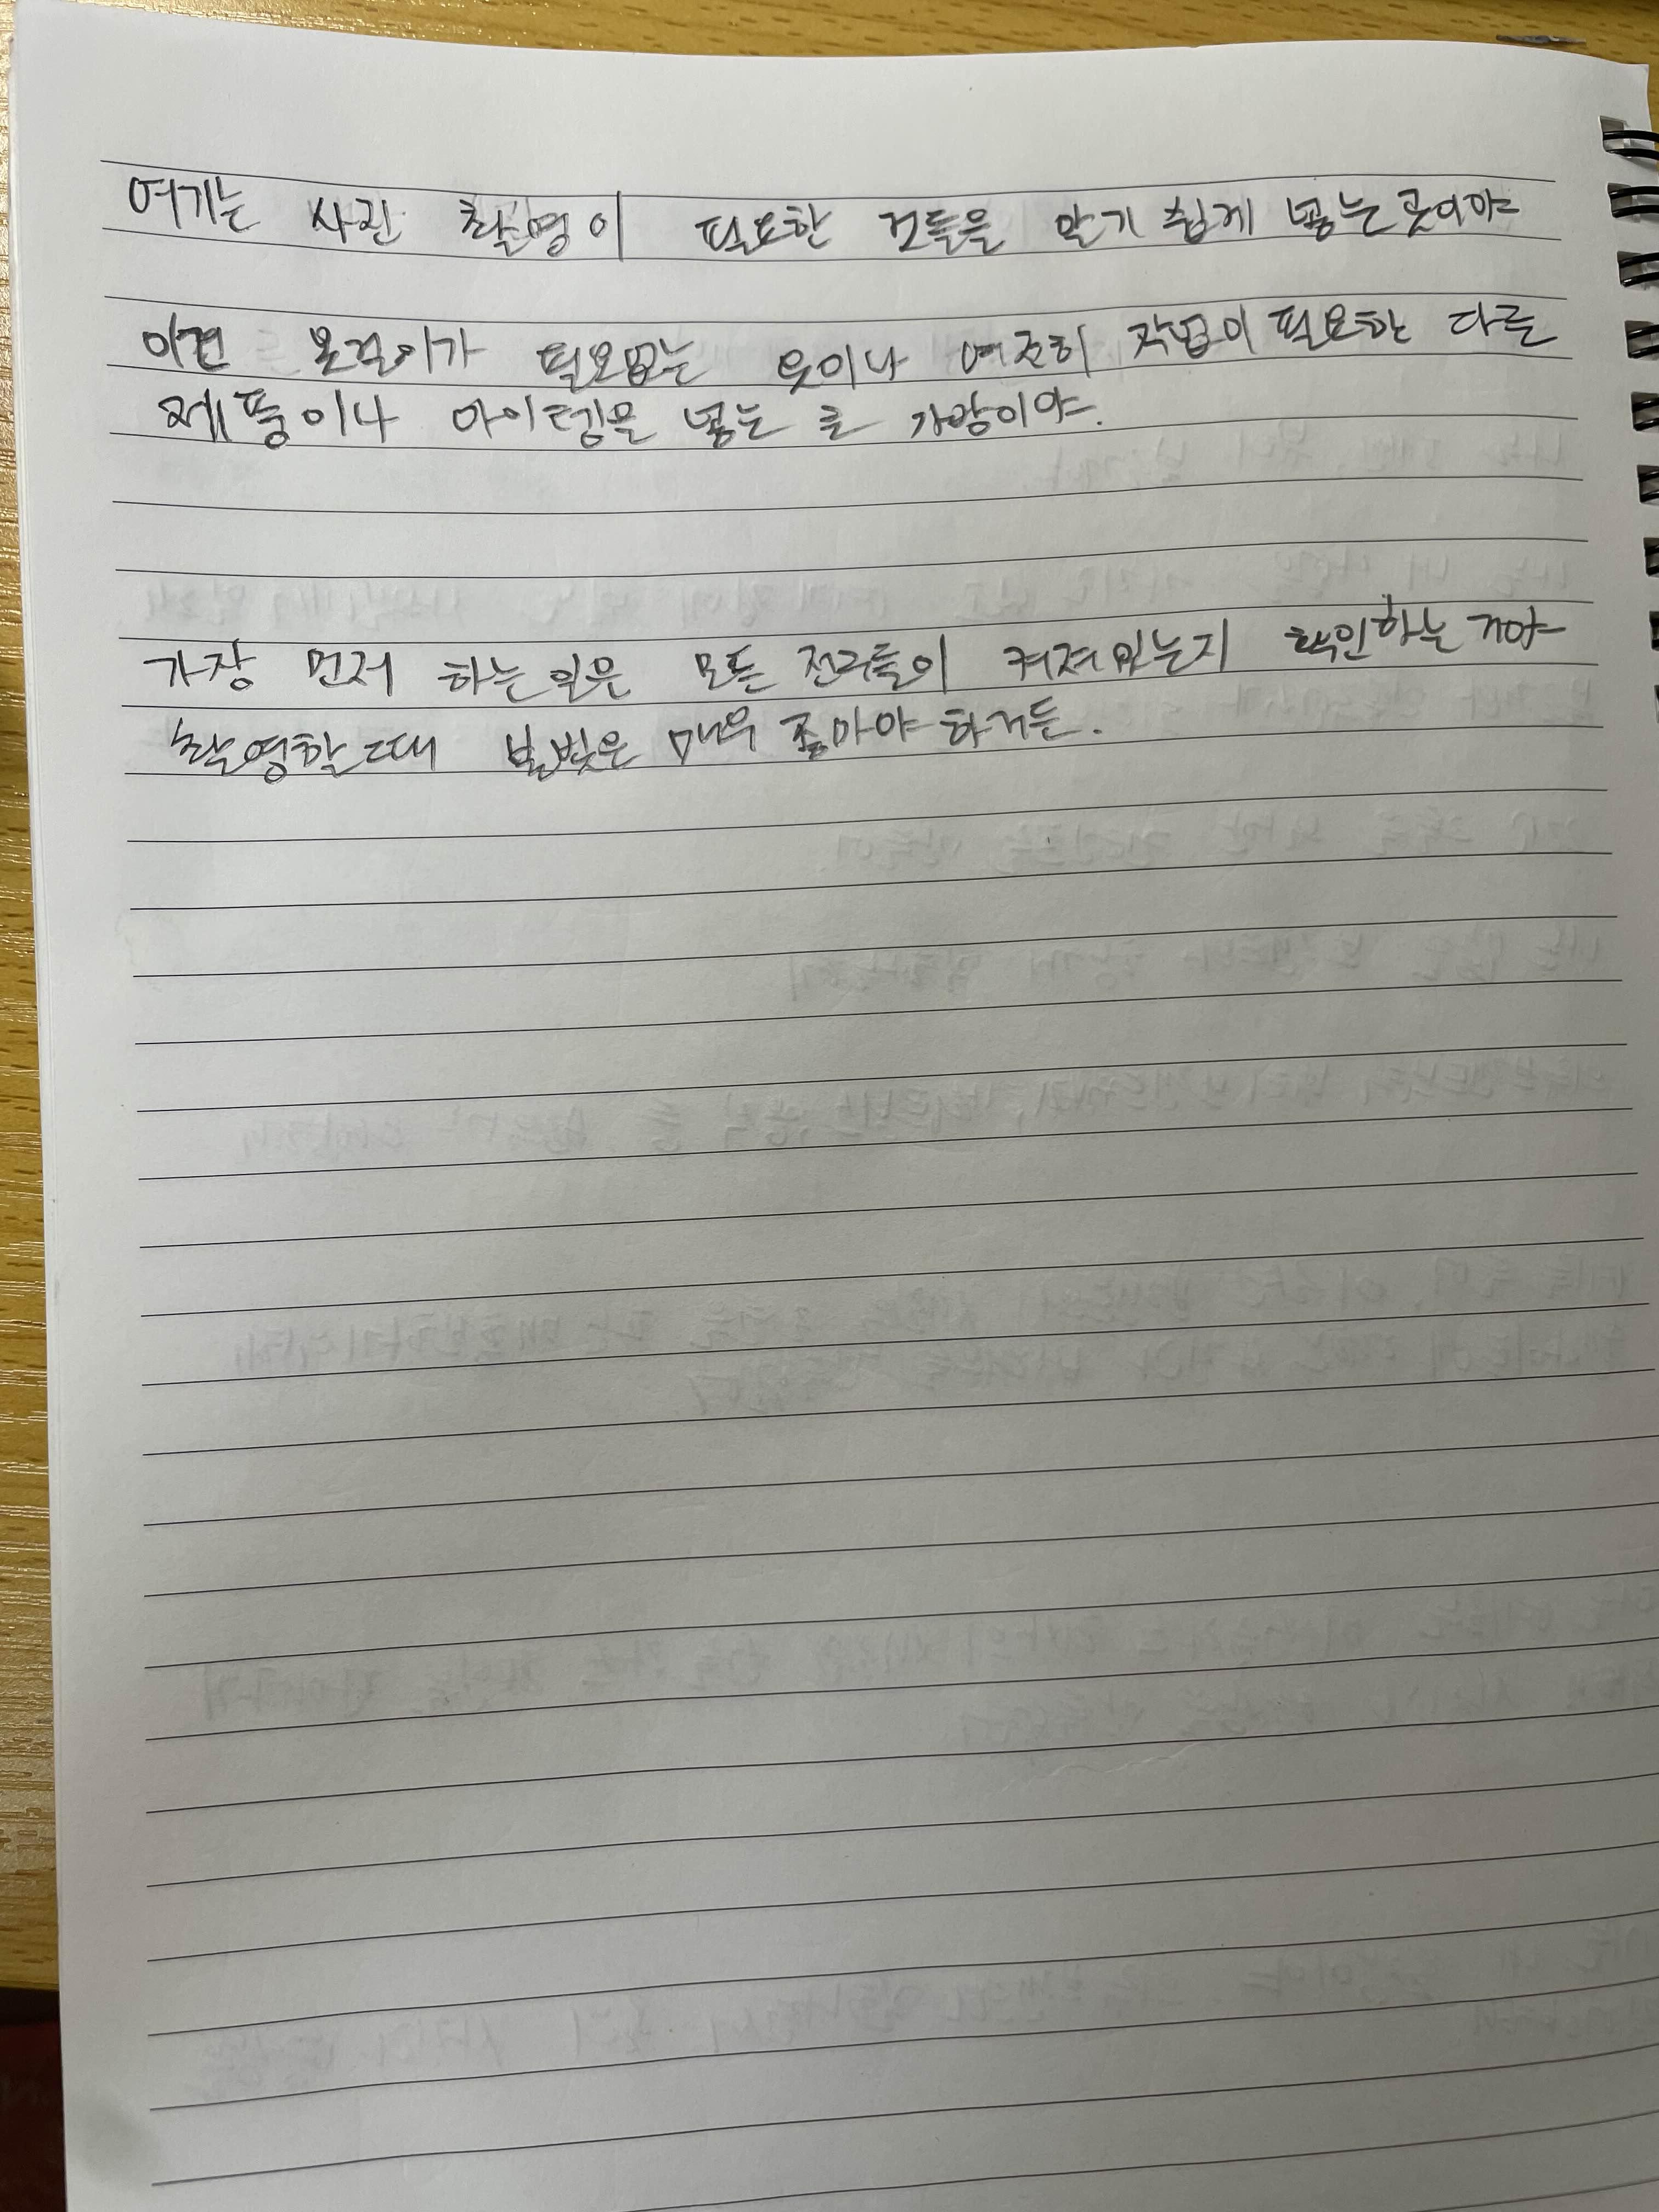 여기는 사진 촬영이 필요한 것들을 알기 쉽게 넣는 곳이야
이건 옷걸이가 필요없는 옷이나 여전히 작업이 필요한 다른
제품이나 아이템을 넣는 큰 가방이야.
가장 먼저 하는일은 모든 전구들이 켜져있는지 확인하는 거야
촬영할 때 불빛은 매우 좋아야 하거든.